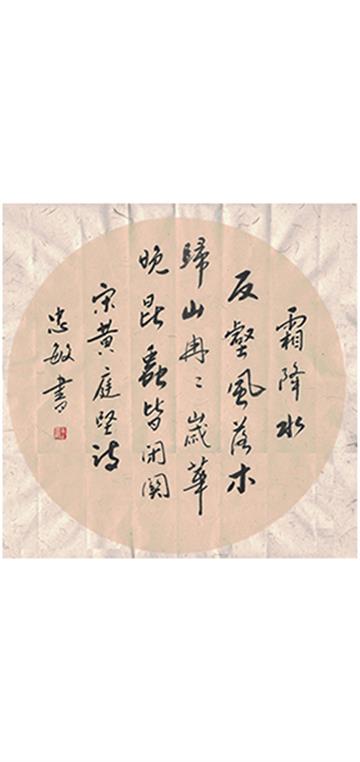 霜降水
反壑風落木
歸山冉〻歲華
晚昆蟲皆閉關
宋黃庭堅詩
忠敏書